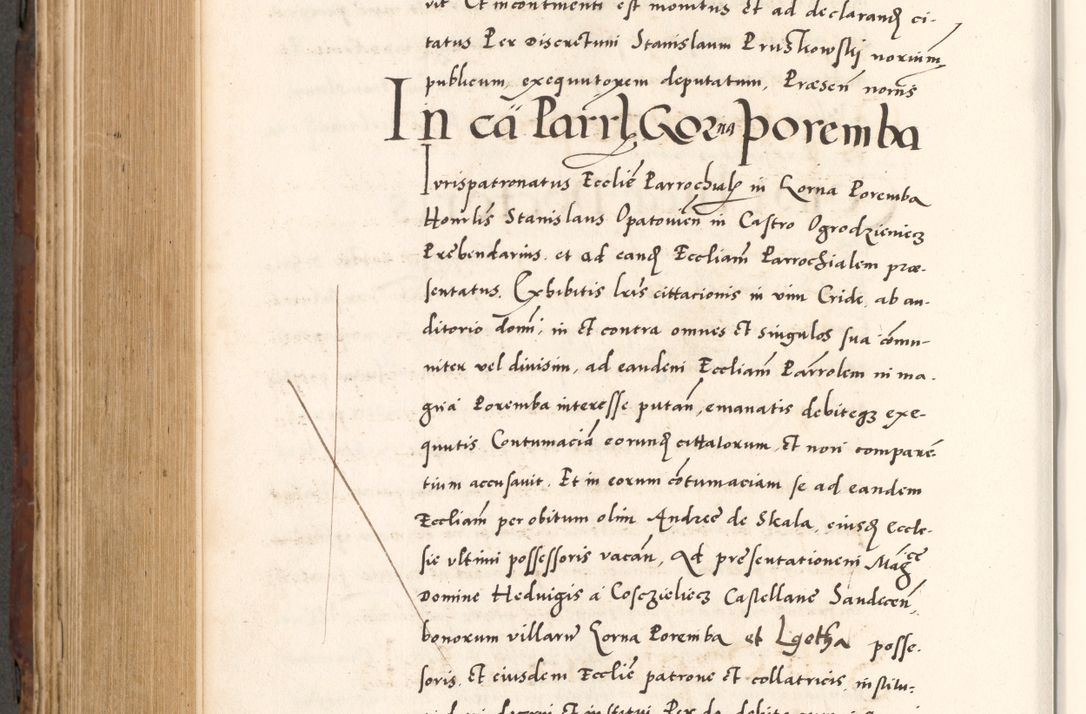 vit Et incontinenti est monitus et ad declarand ci-
tatus Per Discretum Stanislaum Pruszkowskij norium
publicum, exequutorem deputatum, Præsen noris
In cã Parrl Gorna poremba
Iurispatronatus Ecclie Parrochial in Gorna Poremba
Honrlis Stanislaus Opatovien in Castro Ogrodzieniecz
Prebendarius, et ad eand Eccliam Parrochialem præ-
sentatus, Exhibitis lris cittacionis in vim Cride, ab au-
ditorio domi, in et contra omnes et singulos sua cõmu-
niter vel divisim, ad eandem Eccliam Parrolem in ma-
gna Poremba interesse putan, emanatis debiteqz exe-
quutis. Contumaciã eorund cittatorum, et non comparẽ-
tium accusavit. Et in eorum cõtumaciam se ad eandem
Eccliam per obitum olim Andree de Skala, eiusd Eccle-
sie ultimi possessoris vacan, Ad presentationem Magce
Domine Hedvigis a Cosczieliecz Castellane Sandecen,
bonorum villarũ Gorna Poremba et Lgotha posse-
soris, et eiusdem Ecclie patrone et collatricis, institu-